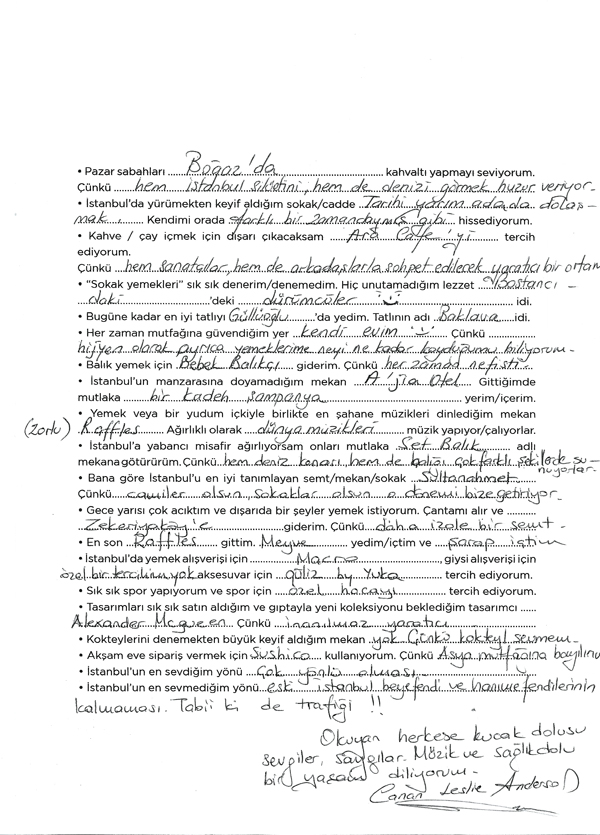 • Pazar sabahları ...... Boğaz'da ...... kahvaltı yapmayı seviyorum.
Çünkü ...... hem istanbul siluetini, hem de denizi görmek huzur veriyor-
• İstanbul'da yürümekten keyif aldığım sokak/cadde .. Tarihi yarım adada dolaş-
mak ........ Kendimi orada farklı bir zamandaymış gibi hissediyorum.
• Kahve / çay içmek için dışarı çıkacaksam ...... Ara Caffe'yi ...... tercih
ediyorum.
Çünkü hem sanatçılar, hem de arkadaşlarla sohpet edilecek yaratıcı bir ortam
• "Sokak yemekleri" sık sık denerim/denemedim. Hiç unutamadığım lezzet Bostancı-
daki ......'deki ...... dürümcüler ...... idi.
• Bugüne kadar en iyi tatlıyı Güllüoğlu......'da yedim. Tatlının adı Baklava.....idi.
• Her zaman mutfağına güvendiğim yer kendi evim ...... Çünkü ......
hijyen olarak ayrıca yemeklerime neyi ne kadar koyduğumu biliyorum-
• Balık yemek için Bebek Balıkçı .... giderim. Çünkü her zaman nefisti..
• İstanbul'un manzarasına doyamadığım mekan .... A'jia Otel .... Gittiğimde
mutlaka ...... bir kadeh şampanya ...... yerim/içerim.
• Yemek veya bir yudum içkiyle birlikte en şahane müzikleri dinlediğim mekan
(Zorlu) Raffles...... Ağırlıklı olarak .... dünya müzikleri .... müzik yapıyor/çalıyorlar.
• İstanbul'a yabancı misafir ağırlıyorsam onları mutlaka .. Set Balık ...... adlı
mekana götürürüm. Çünkü hem deniz kenarı, hem de balığı çok farklı şekillerde su-
nuyorlar.
• Bana göre İstanbul'u en iyi tanımlayan semt/mekan/sokak .... Sultanahmet ....
Çünkü.... camiler olsun, sokaklar olsun o dönemi bize getiriyor.
• Gece yarısı çok acıktım ve dışarıda bir şeyler yemek istiyorum. Çantamı alır ve ..........
.. Zekeriyaköy'e ..............giderim. Çünkü .... daha izole bir semt.
• En son .. Raffles ...... gittim. Meyve ...... yedim/içtim ve .... şarap içtim
• İstanbul'da yemek alışverişi için ...... Macro ............ giysi alışverişi için
özel bir tercihim yok aksesuvar için .. güliz by Yuka ...... tercih ediyorum.
• Sık sık spor yapıyorum ve spor için ...... özel hocayı ............ tercih ediyorum.
• Tasarımları sık sık satın aldığım ve gıptayla yeni koleksiyonu beklediğim tasarımcı .....
Alexander Mcqueen.. Çünkü .... inanılmaz yaratıcı ......
• Kokteylerini denemekten büyük keyif aldığım mekan yok Çünkü kokteyl sevmem-
• Akşam eve sipariş vermek için Sushico .... kullanıyorum. Çünkü Asya mutfağına bayılırım
• İstanbul'un en sevdiğim yönü .... Çok yönlü olması ......
• İstanbul'un en sevmediğim yönü ..eski istanbul beyefendi ve hanımefendilerinin
kalmaması. Tabii ki de trafiği !!
Okuyan herkese kucak dolusu
sevgiler, saygılar. Müzik ve sağlık dolu
bir yaşam diliyorum-
Canan Leslie Anderson